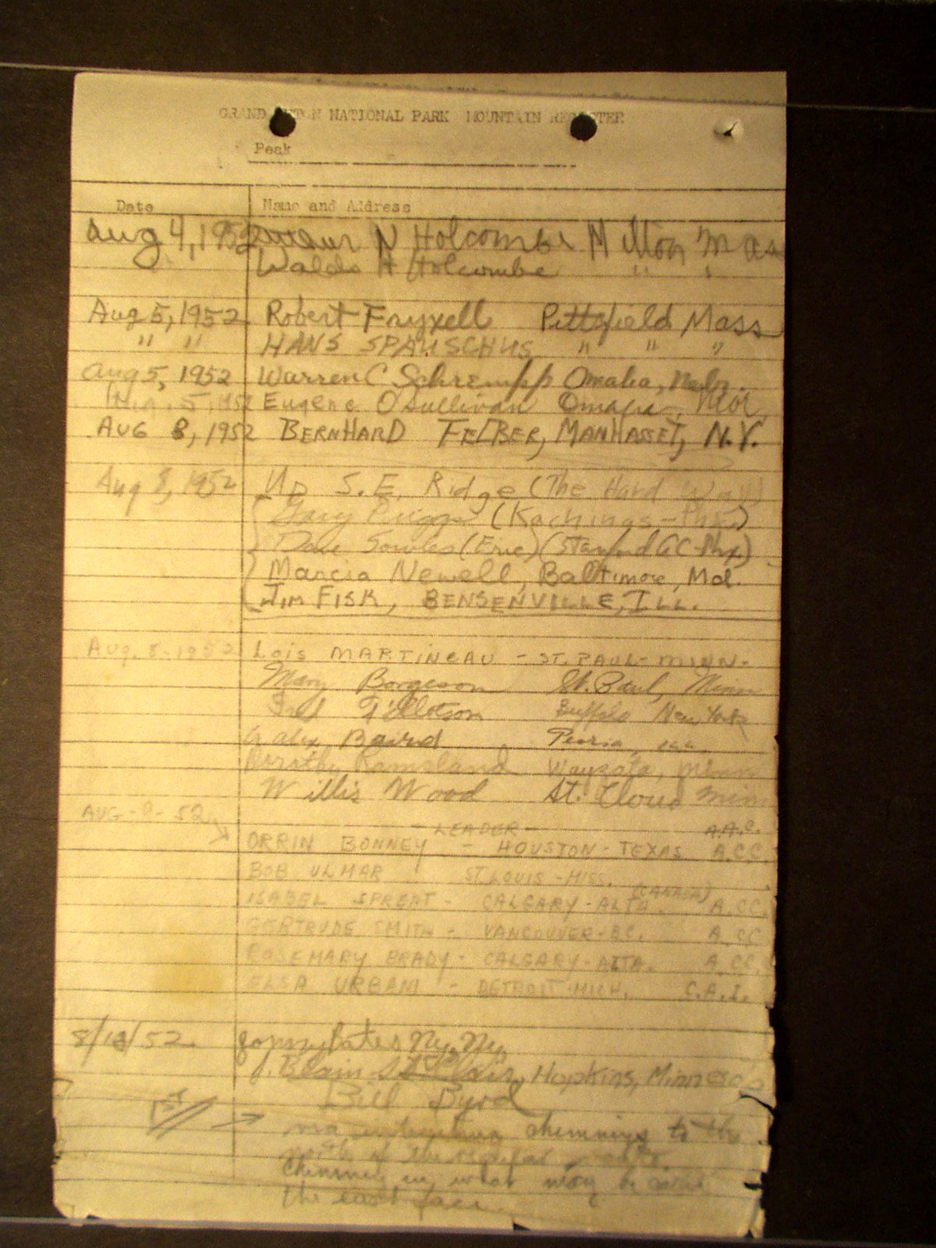 GRAND TETON NATIONAL PARK MOUNTAIN REGISTER
Peak
Date Name and Address
Aug 4, 1952 Arthur N Holcombe Milton Mass
Waldo H Holcombe " "
Aug 5, 1952 Robert Fryxell Pittsfield Mass
" " HANS SPAUSCHUS " " "
Aug 5, 1952 Warren C Schrempp Omaha, Nebr.
Aug. 5, 1952 Eugene O'Sullivan Omaha,
AUG 8, 1952 BERNHARD FELBER, MANHASSET, N.Y.
Aug 8, 1952 Up S.E. Ridge (The Hard Way)
Gary Driggs (Kachings-Phx)
Dave Sowles (Eric) (Stanford AC-Phx)
Marcia Newell, Baltimore, Md.
JIM FISK, BENSENVILLE, ILL.
Aug. 8-1952 LOIS MARTINEAU - ST. PAUL - MINN.
Mary Borgeson St. Paul, Minn
Fred Tillotson Buffalo New York
Baird Peoria, Ill.
Dorothy Ramsland Wayzata, Minn
Willis Wood St. Cloud Minn
- LEADER - A.A.C.
AUG-8-52 ORRIN BONNEY - HOUSTON - TEXAS A.C.C.
BOB ULMAR ST LOUIS - MISS.
(CANADA)
ISABEL SPREAT - CALGARY - ALTA. A.C.C.
GERTRUDE SMITH - VANCOUVER - B.C. A.C.C.
ROSEMARY BRADY - CALGARY - ALTA. A.C.C.
ELSA URBANI - DETROIT MICH. C.A.I.
8/13/52 Gates Ny, Ny,
J. Blain St Clair, Hopkins, Minnesota
Bill Byrd
1st via interesting chimneys to the
of the regular
chimney in what may be called
the east face